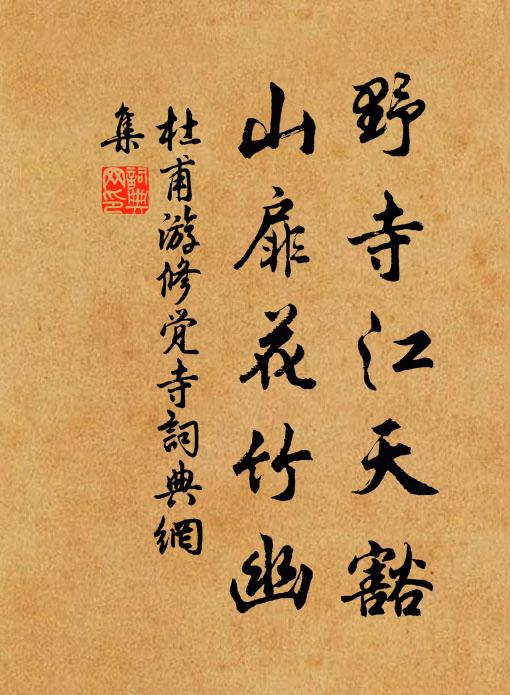 野寺江天豁
山扉花竹幽
杜甫游修覚寺詞典網
集
詞典網印